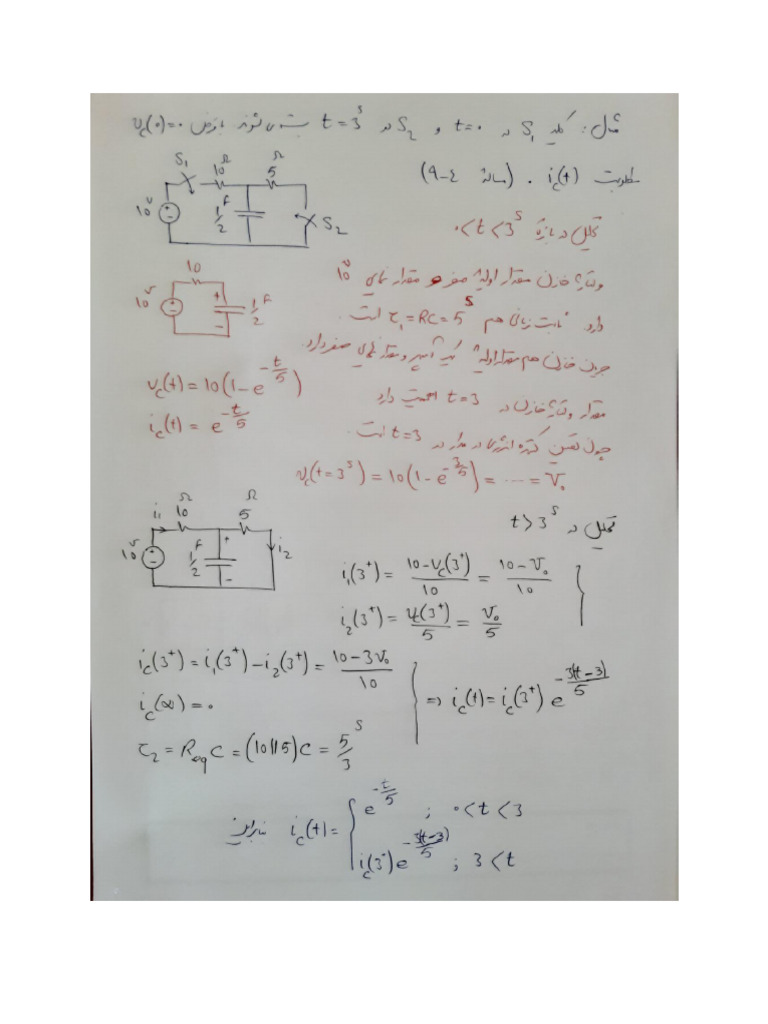 مثال: کلید S₁ در t=۰ و S₂ در t=3ˢ بسته می شوند با فرض v_c(۰)=۰
مطلوبست i_c(t) . (مسالهٔ ٤-٩)
S₁ 10 Ω 5 Ω 10ᵛ 1/2 F S₂
تحلیل در بازهٔ ۰<t<3ˢ
10 10ᵛ + − 1/2 F
ولتاژ خازن مقدار اولیهٔ صفر و مقدار نهایی 10ᵛ
دارد ثابت زمانی هم τ₁=RC=5ˢ است.
جریان خازن هم مقدار اولیهٔ یک آمپر و مقدار نهایی صفر دارد.
v_c(t)=10(1-e^{-t/5})
مقدار ولتاژ خازن در t=3 اهمیت دارد
i_c(t)=e^{-t/5}
چون تعیین کننده انرژی در مدار در t=3 است.
v_c(t=3ˢ)=10(1-e^{-3/5})=...=V₀
تحلیل در t>3ˢ
i₁ 10 Ω 5 Ω 10ᵛ 1/2 F + − i₂
i₁(3⁺)=(10-v_c(3⁺))/10=(10-V₀)/10
i₂(3⁺)=v_c(3⁺)/5=V₀/5
i_c(3⁺)=i₁(3⁺)-i₂(3⁺)=(10-3V₀)/10
i_c(∞)=۰
⇒ i_c(t)=i_c(3⁺)e^{-3(t-3)/5}
τ₂=R_eq C=(10||5)C=5/3 ˢ
بنابراین i_c(t)= { e^{-t/5} ; ۰<t<3
i_c(3⁺)e^{-3(t-3)/5} ; 3<t